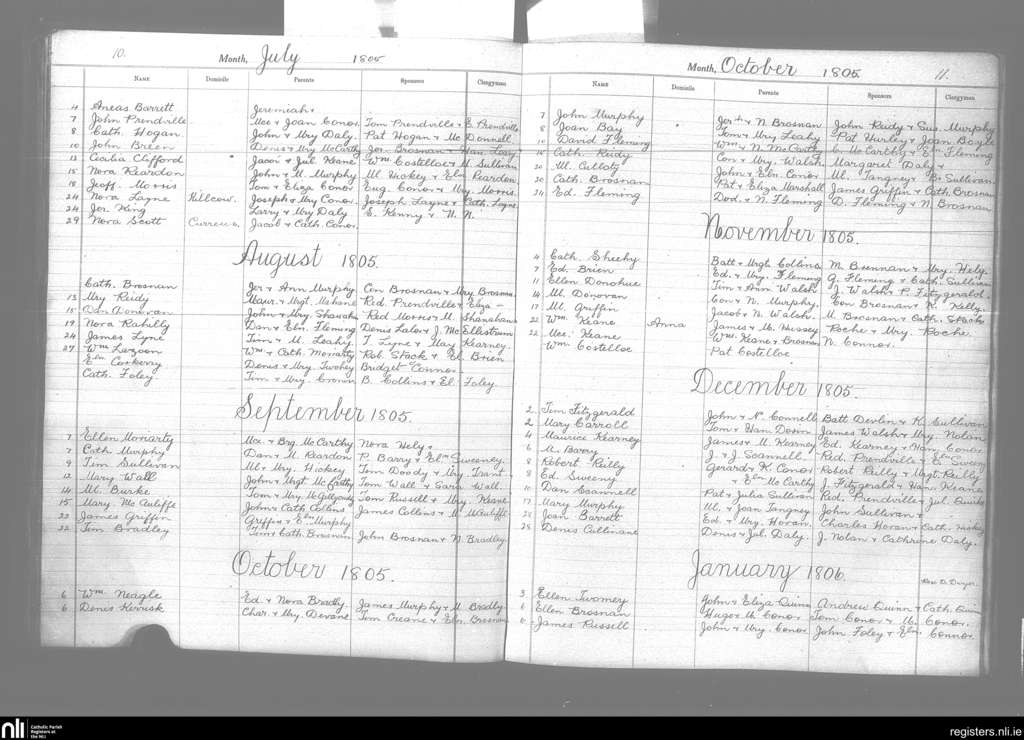 10.
Month, July 1805
Name Domicile Parents Sponsors Clergyman
4 Aneas Barrett Jeremiah
7 John Prendville Moe & Joan Conor Tom Prendville & E. Prendville
8 Cath. Hogan John & Mry Daly. Pat Hogan & Donnell
10 John Breen Denis & Mry McCarthy Jer. Brosnan & Leary
13 Cecilia Clifford Jacob & Jul. Keane Wm Costelloe & M Sullivan
15 Nora Reardon John & M. Murphy Ml. Hickey & Eln Reardon
18 Jeoff. Morris Tom & Eliza Conor Eug. Conor & Mry Morris.
24 Nora Layne Killcow. Joseph & Mry Conor. Joseph Layne & Cath. Layne
24 Jer. King Larry & Mry Daly E. Kenny & N. N.
29 Nora Scott Jacob & Cath. Conor.
August 1805.
Cath. Brosnan Jer & Ann Murphy Con Brosnan & Mry Brosnan
13 Mry Reidy Maur. & Mrgt. Mahane Red Prendville & Eliza
15 Dan Donovan John & Mry Red Morris & M. Shanahan
19 Nora Rahilly Dan & Eln. Fleming Denis Lalor & J. McEllistrum
24 James Lyne Tim & M. Leahy. T. Lyne & Mary Kearney.
27 Wm Wm & Cath. Moriarty Rob. Stack & El. Brien
Eln Corkerry Denis & Mry Twohey Bridget Connor
Cath. Foley Tim & Mry Cronin B. Collins & El. Foley.
September 1805.
7 Ellen Moriarty Moe. & Brg. McCarthy Nora Hely
7 Cath Murphy Dan & M. Reardon P. Barry & Eln Sweeney
9 Tim Sullivan Ml & Mry Hickey Tom Doody & Mry Trant
12 Mary Wall John & Mrgt McCarthy Tom Wall & Sara Wall.
14 Ml. Burke Tom & Mry Tom Russell & Mry Keane
15 Mary McAuliffe John & Cath Collins James Collins & M McAuliffe
22 James Griffin Griffin & En Murphy
22 Tim Bradley Tim & Cath. Brosnan John Brosnan & N. Bradley.
October 1805.
6 Wm. Neagle Ed. & Nora Bradly. James Murphy & M Bradly.
6 Denis Kerrisk Char. & Mry. Devane Tim Creane & Eln. Brosnan
Month, October 1805. 11.
Name Domicile Parents Sponsors Clergyman
7 John Murphy Jerh & N. Brosnan John Reidy & Sus. Murphy
8 Joan Bay Tom & Mry Leahy Pat Hurley & Joan Boyle
10 David Fleming Wm & N. McCarthy C. McCarthy & En Fleming
15 Cath. Reidy Con & Mry. Walsh. Margaret Daly
20 Ml. Culloty John & Eln. Conor Ml. Tangney & P. Sullivan.
20 Cath. Brosnan Pat & Eliza Marshall James Griffin & Cath. Brosnan
24 Ed. Fleming Dod. & N. Fleming D. Fleming & N. Brosnan
November 1805.
4 Cath. Sheehy Batt & Mrgt Collins M. Brennan & Mry. Hely.
7 Ed. Brien Ed. & Mry. Fleming G. Fleming & Cath. Sullivan
11 Ellen Donohue Tim & Ann Walsh J. Walsh & P. Fitzgerald.
14 Ml. Donovan Con & N. Murphy. Con Brosnan & K. Kelly.
17 Ml. Griffin Jacob & N. Walsh. M Brosnan & Cath. Stack
22 Wm. Keane Anna James & M. Hussey Roche & Mry. Roche.
22 Moe. Keane Wm. Keane & Brosnan N. Connor.
Wm Costelloe Pat Costelloe
December 1805.
2 Tim Fitzgerald John & N. Connell Batt Devlin & K. Sullivan
2 Mary Carroll Tom & Han. James Walsh & Mry. Nolan
4 Maurice Kearney James & M. Kearney Ed. Kearney & Han. Conor.
6 M. Barry J. & J. Scannell Red. Prendville & Eln Sweeny
8 Robert Reilly Gerard & K. Conor Robert Reilly & Mrgt. Reilly
8 Ed. Sweeny & Eln McCarthy J. Fitzgerald & Han.
10 Dan Scannell Pat & Julia Sullivan Red. Prendville & Jul. Quirke
17 Mary Murphy Ml. & Joan Tangney John Sullivan &
28 Joan Barrett Ed. & Mry. Horan. Charles Horan & Cath. Hickey
28 Denis Cullinane Denis & Jul. Daly. J. Nolan & Cathrine Daly.
January 1806.
3 Ellen Twomey John & Eliza Quinn Andrew Quinn & Cath. Quinn
6 Ellen Brosnan Hugo & M. Conor Tom Conor & M. Conor.
6 James Russell John & Mry. Conor John Foley & Eln. Connor.
nli Catholic Parish Registers at the NLI
registers.nli.ie